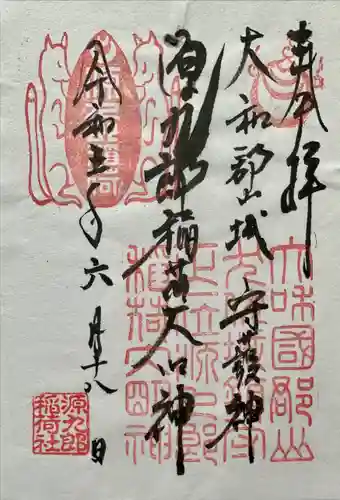 奉拝
大和郡山城 守護神
源九郎稲荷大明神
令和五年六月十八日
大和國郡山
正一位源九郎
稲荷大明神
源九郎
稲荷社